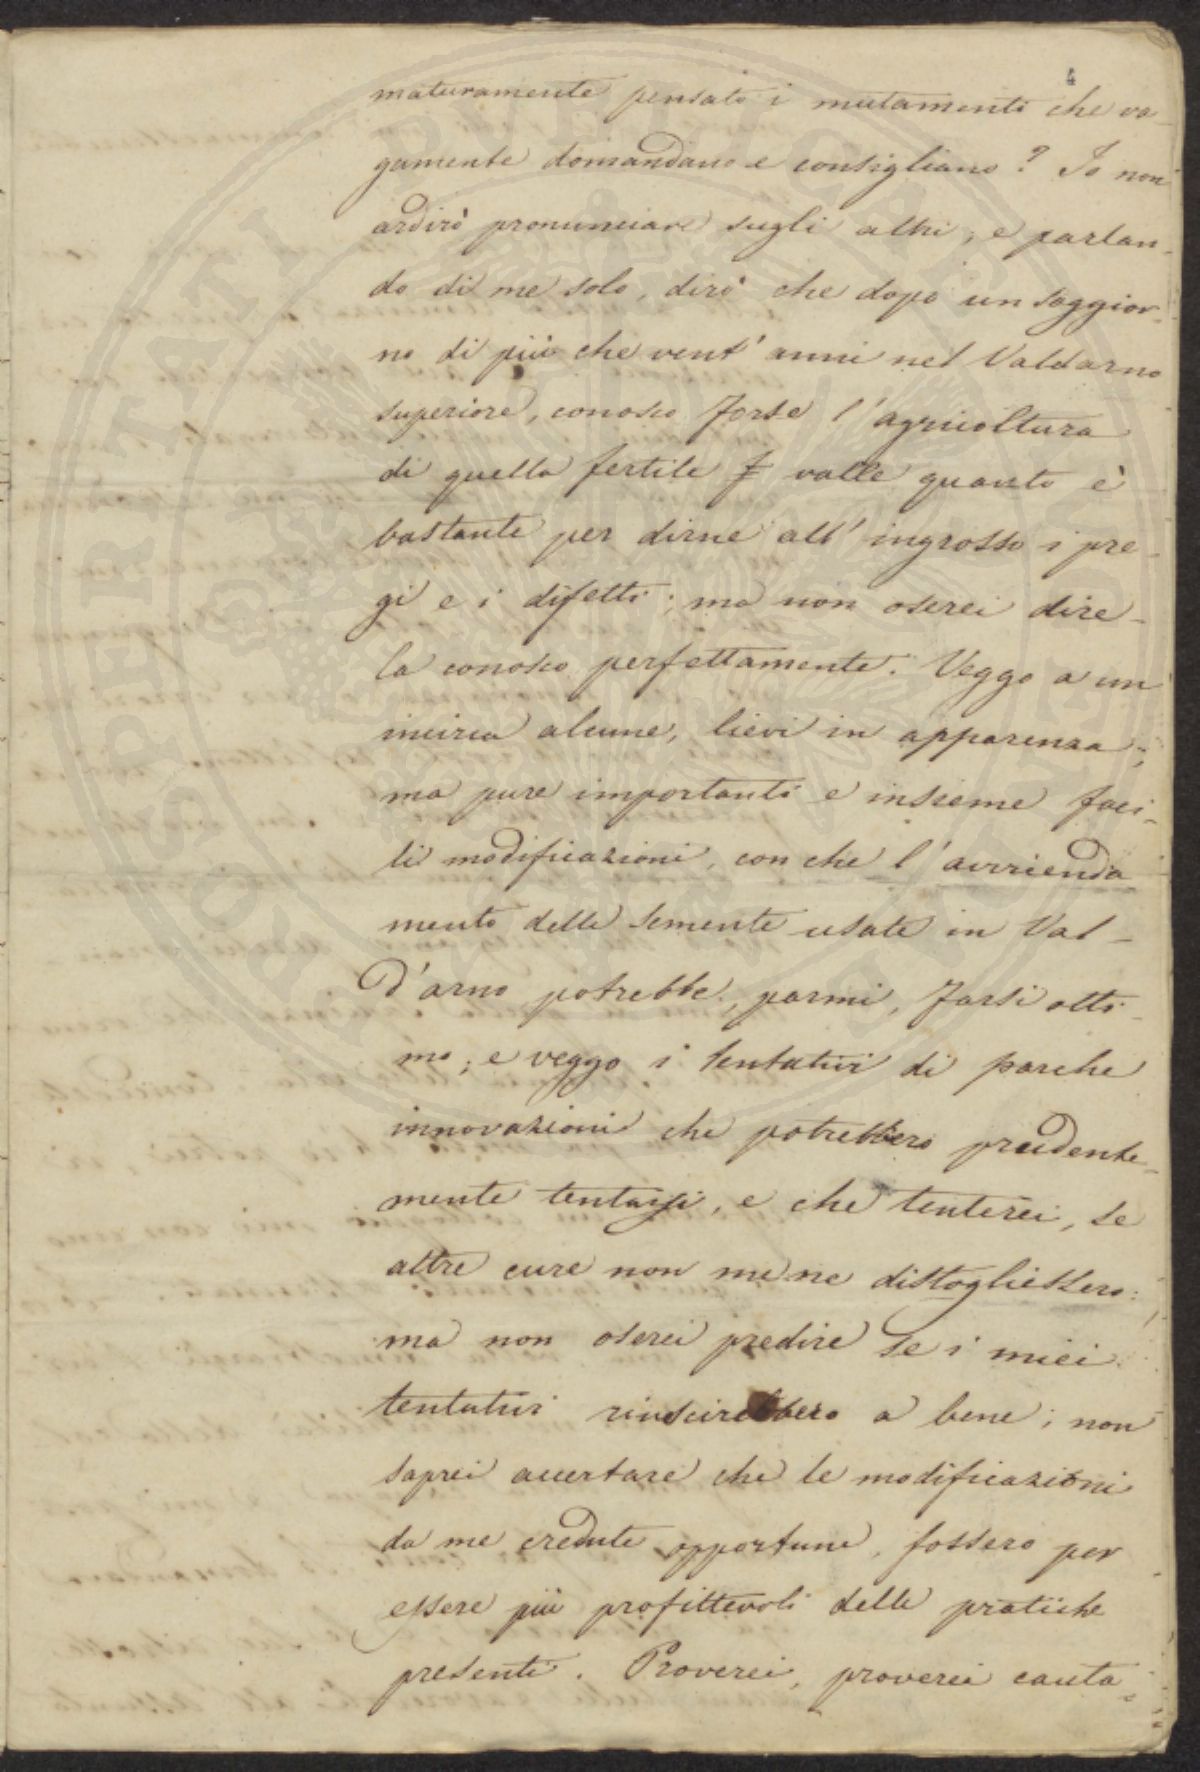 4
maturamente pensato i mutamenti che va-
gamente domandano e consigliano? Io non
ardirò pronunciare sugli altri, e parlan-
do di me solo, dirò che dopo un soggior-
no di più che vent' anni nel Valdarno
superiore, conosco forse l'agricoltura
di quella fertile valle quanto è
bastante per dirne all' ingrosso i pre-
gi e i difetti; ma non oserei dire-
la conosco perfettamente. Veggo a un
incirca alcune, lievi in apparenza,
ma pure importanti e insieme faci-
li modificazioni, con che l'avvicenda
mento delle sementi usate in Val-
d'arno potrebbe, parmi, farsi otti-
mo; e veggo i tentativi di parche
innovazioni che potrebbero prudente-
mente tentarsi, e che tenterei, se
altre cure non me ne distogliessero:
ma non oserei predire se i miei
tentativi riuscirebbero a bene; non
saprei accertare che le modificazioni
da me credute opportune, fossero per
essere più profittevoli delle pratiche
presenti. Proverei, proverei cauta-
PROSPERITATI PUBLICAE AUGENDAE